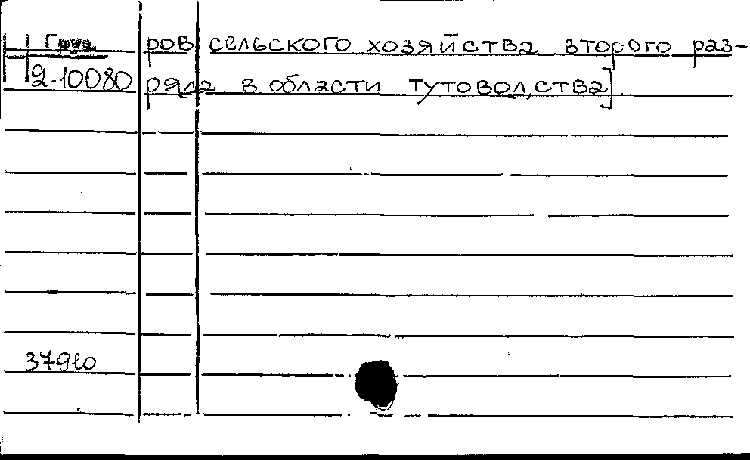 Груз. ров сельского хозяйства второго раз-
2-10080 ряда в области тутоводства]